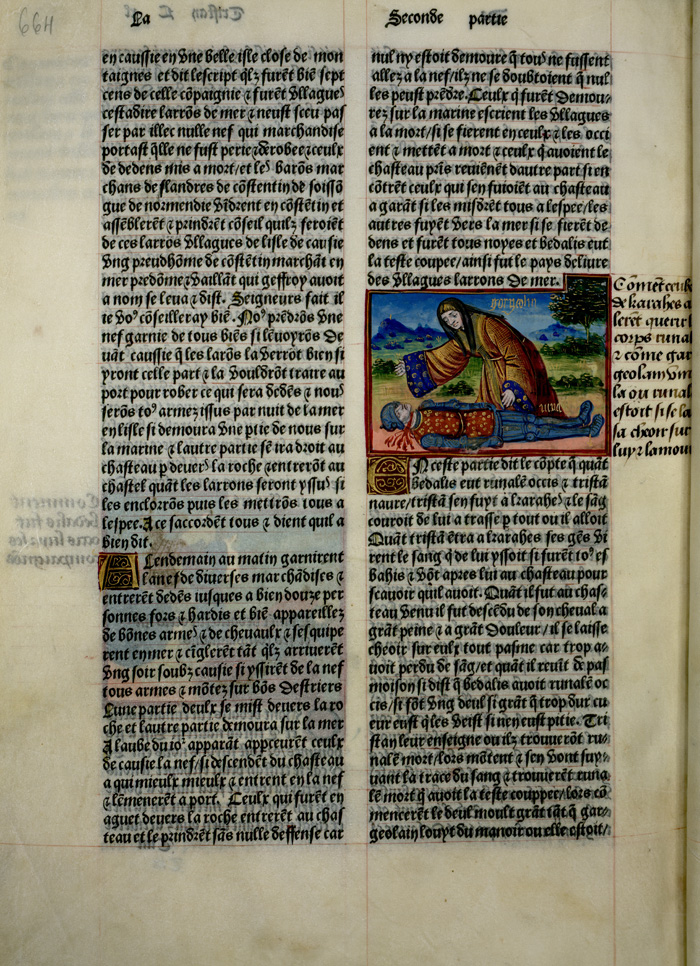 664
La Seconde partie
en caussie en vne belle isle close de mon
taignes et dit lescript qlz furēt biē sept
cens de celle cōpaignie ⁊ furēt vllagueˢ
cestadire larrōs de mer ⁊ neust sceu pas
ser par illec nulle nef qui marchandise
portast q̄lle ne fust perie ⁊ desrobee ⁊ ceulx
de dedens mis a mort/et leˢ barōs mar
chans de flandres de cōstentin de soissō
gne de normendie vīdrent en cōstētin et
assēblerēt ⁊ prindrēt cōseil quilz feroiēt
de ces larrōs vllagues de lisle de causie
vng preudhōme de cōstētin marchāt en
mer predōme ⁊ vaillāt qui geffroy auoit
a nom se leua ⁊ dist. Seigneurs fait il
ie voˢ cōseilleray biē. Noˢ prēdrōs vne
nef garnie de tous biēs si lēuoyrōs De
uāt caussie q̄ les larōs la verrōt bien si
yront celle part ⁊ la vouldrōt traire au
port pour rober ce qui sera dedēs ⁊ nouˢ
serōs toˢ armez issus par nuit de la mer
en lisle si demoura vne ptie de nous sur
la marine ⁊ lautre partie sē ira droit au
chasteau p deuerˢ la roche ⁊ entrerōt au
chastel quāt les larrons seront yssuˢ si
les enclorrōs puis les mettrōs tous a
lespee. A ce saccordēt tous ⁊ dient quil a
bien dit.
Lendemain au matin garnirent
la nef de diuerses marchādises ⁊
entrerēt dedēs iusques a bien douze per
sonnes fors ⁊ hardis et biē appareillez
de bōnes armeˢ ⁊ de cheuaulx ⁊ sesquipe
rent en mer ⁊ cīglerēt tāt qlz arriuerēt
vng soir soubz causie si yssirēt de la nef
tous armes ⁊ mōtez sur bōs Destriers
Lune partie deulx se mist deuers la ro
che et lautre partie demoura sur la mer
A laube du ioˢ apparāt appceurēt ceulx
de causie la nef/si descendēt du chasteau
a qui mieulx mieulx ⁊ entrent en la nef
⁊ lēmenerēt a port. Ceulx qui furēt en
aguet deuers la roche entrerēt au chas
teau et le prindrēt sās nulle deffense car
nul ny estoit demoure q̄ touˢ ne fussent
allez a la nef/ilz ne se doubtoient q̄ nul
les peust prēdre. Ceulx q̄ furēt Demou-
rez sur la marine escrient les vllagues
a la mort/si se fierent en ceulx ⁊ les occi
ent ⁊ mettēt a mort ⁊ ceulx q̄ auoient le
chasteau prīs reuiēnēt dautre part si en
cōtrēt ceulx qui sen fuioiēt au chasteau
a garāt si les misdrēt tous a lespee/les
autres fuyēt vers la mer si se fierēt de
dens et furēt tous noyes et bedalis eut
la teste coupee/ainsi fut le pays deliure
des vllagues larrons de mer.
Cōmēt ceulx
de karahes a
lerēt querir l
corps runal
⁊ cōme gar
geolain vin
la ou runal
estoit si se la
sa cheoir sur
luy
En ceste partie dit le cōpte q̄ quāt
bedalis eut runalē occis ⁊ tristā
naure/tristā sen fuyt a karaheˢ ⁊ le sāg
couroit de lui a trasse p tout ou il alloit
Quāt tristā ētra a karahes ses gēs vi
rent le sang q̄ de lui yssoit si furēt toˢ es
bahis ⁊ vōt apres lui au chasteau pour
scauoir quil auoit. Quāt il fut au chas-
teau venu il fut descēdu de son cheual a
grāt peine ⁊ a grāt Douleur/il se laisse
cheoir sur eulx tout pasme car trop a-
uoit perdu de sāg/et quāt il reuīt de pas
moison si dist q̄ bedalis auoit runalē oc
cis/si fōt vng deul si grāt q̄ trop dur cu
eur eust q̄ les veist si nen eust pitie. Tri
stan leur enseigne ou ilz trouuerōt ru-
nalē mort/lors mōtent ⁊ sen vont suy-
uant la trace du sang ⁊ trouuerēt runa
lē mort q̄ auoit la teste couppee/lors cō
mencerēt le deul moult grāt tāt q̄ gar-
geolain louyt du manoir ou elle estoit/